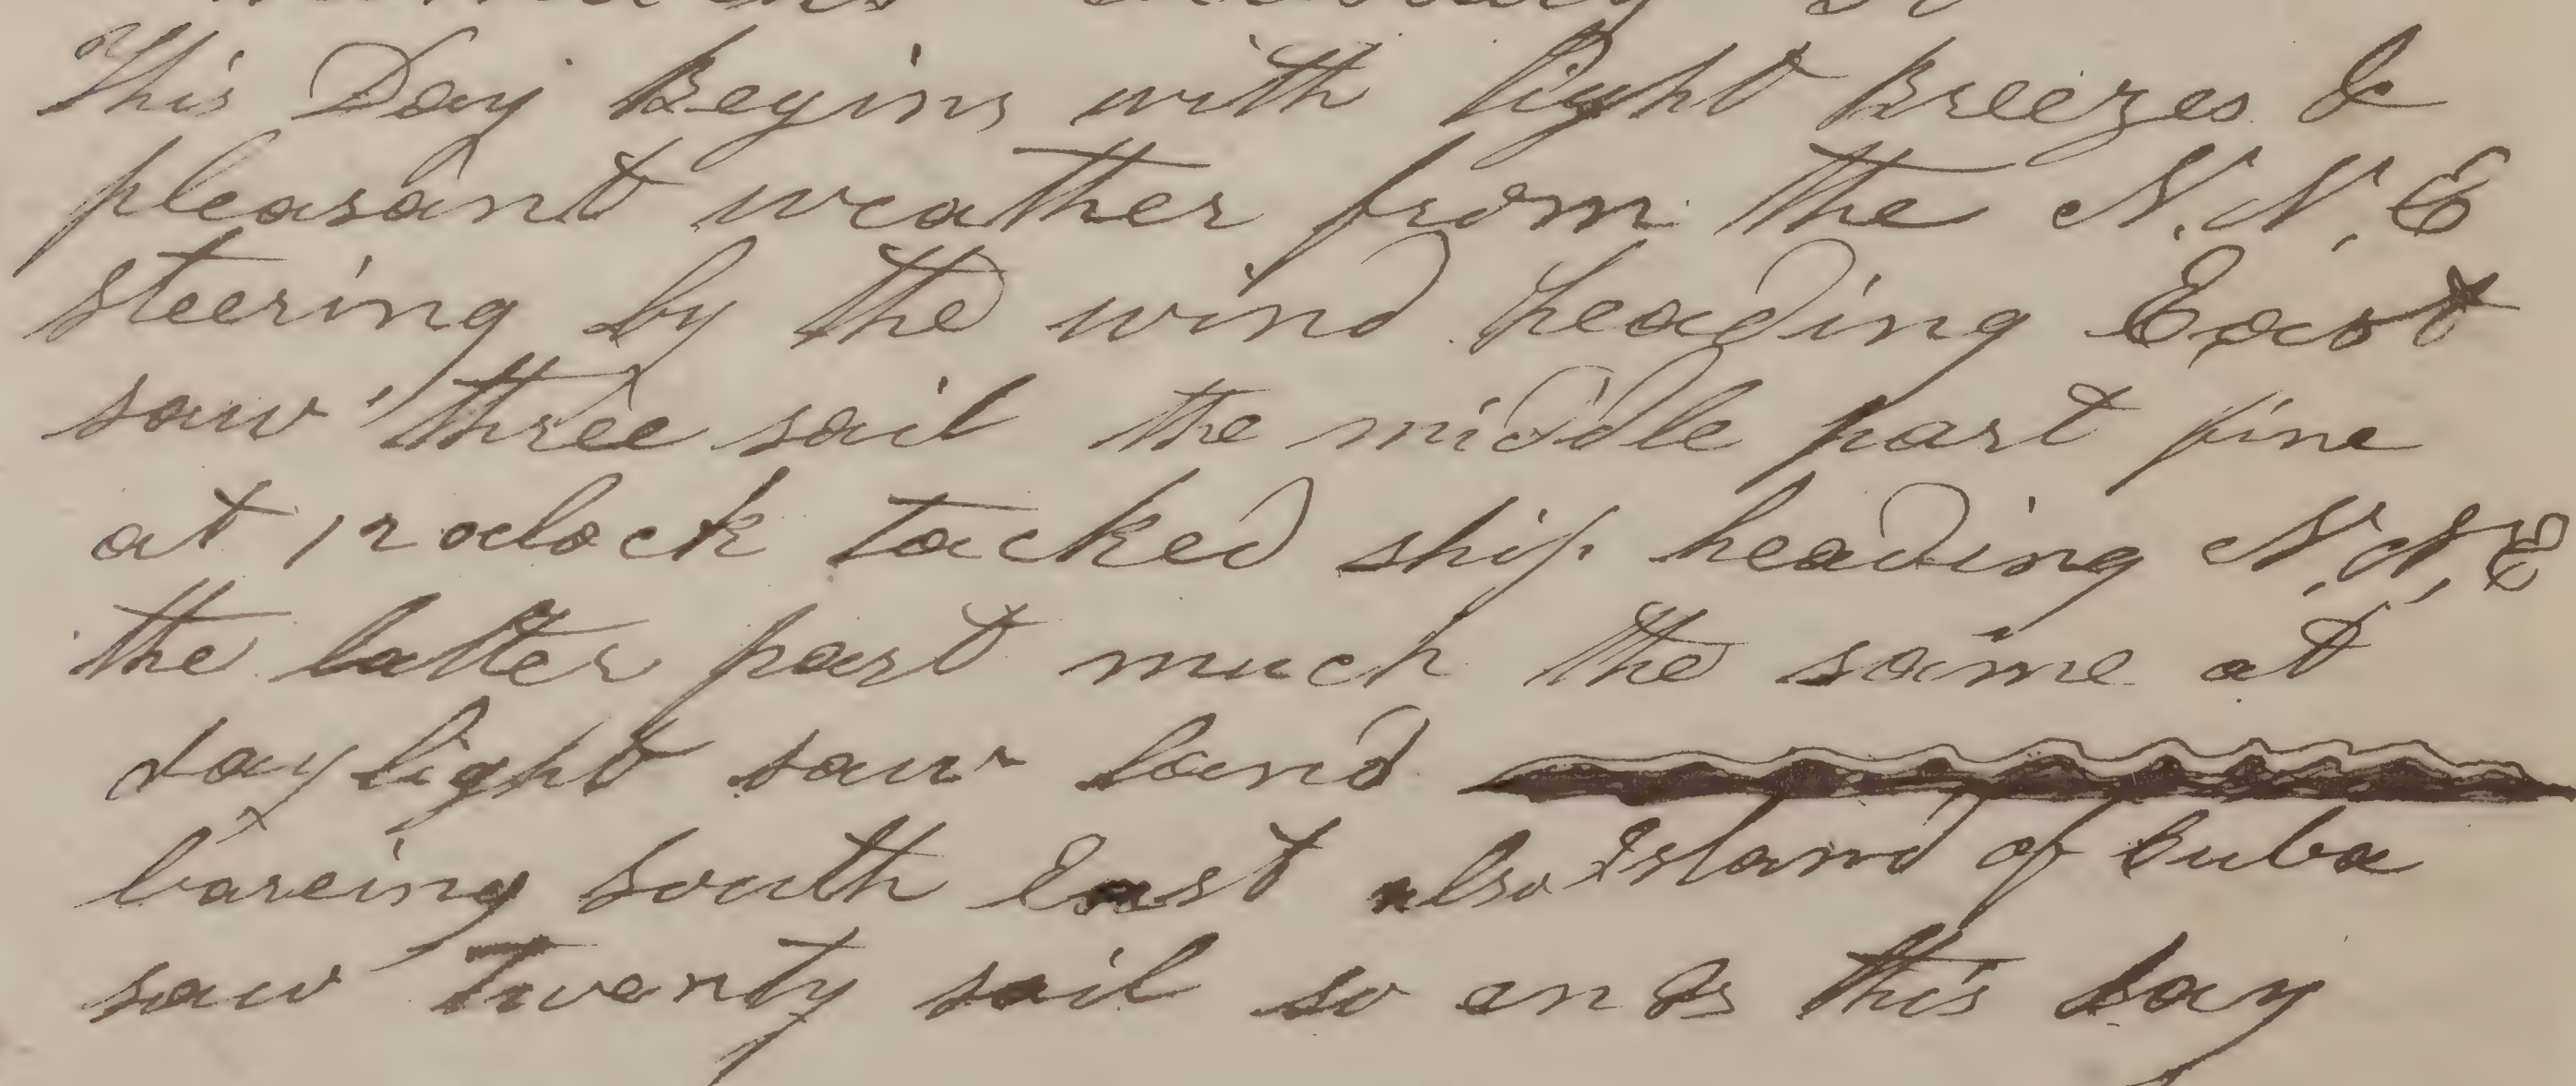 This Day Begins with light Breezes &
pleasant weather from the N. N, E
steering by the wind heading East
saw three sail the middle part fine
at 12 oclock tacked ship heading N. N, E
the latter part much the same at
daylight saw land
bareing South East also Island of Cuba
saw Twenty sail so ends this day